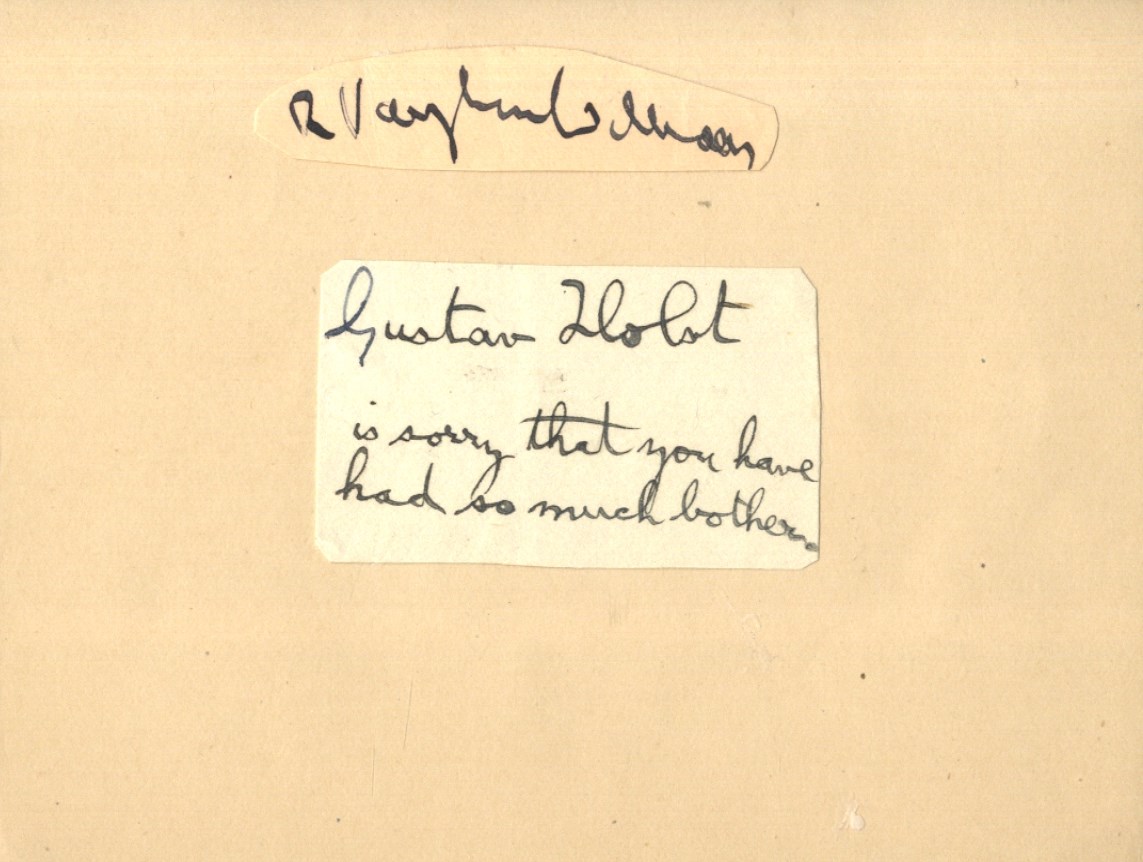 R Vaughan Williams
Gustav Holst
is sorry that you have
had so much bother.